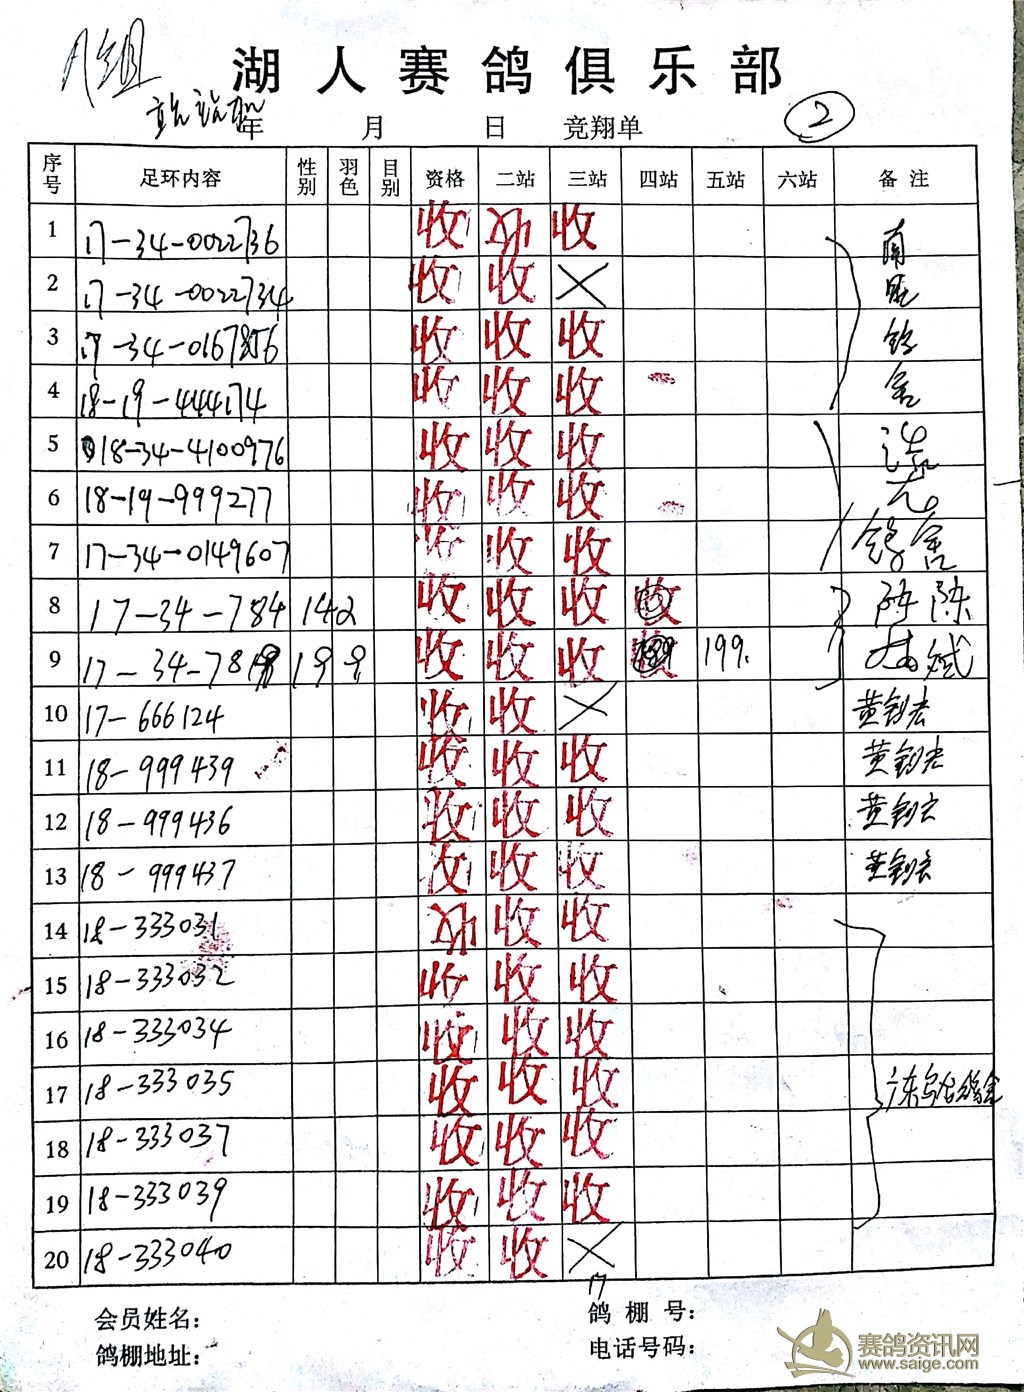 A组
湖人赛鸽俱乐部
年 月 日 竞翔单 2
序号 足环内容 性别 羽色 目别 资格 二站 三站 四站 五站 六站 备注
1 17-34-0022736 收 收 收
2 17-34-0022734 收 收 ×
3 17-34-0167856 收 收 收
4 18-19-444174 收 收 收
5 18-34-4100976 收 收 收
6 18-19-999277 收 收 收
7 17-34-0149607 收 收 收 鸽舍
8 17-34-784142 收 收 收 收 陈陈
9 17-34-78 199 收 收 收 199. 斌
10 17-666124 收 收 × 黄钊宏
11 18-999439 收 收 收 黄钊宏
12 18-999436 收 收 收 黄钊宏
13 18-999437 收 收 收 黄钊宏
14 18-333031 收 收 收
15 18-333032 收 收 收
16 18-333034 收 收 收
17 18-333035 收 收 收 广东乌龙鸽舍
18 18-333037 收 收 收
19 18-333039 收 收 收
20 18-333040 收 收 ×
17
会员姓名： 鸽棚号：
鸽棚地址： 电话号码：
赛鸽资讯网
www.saige.com